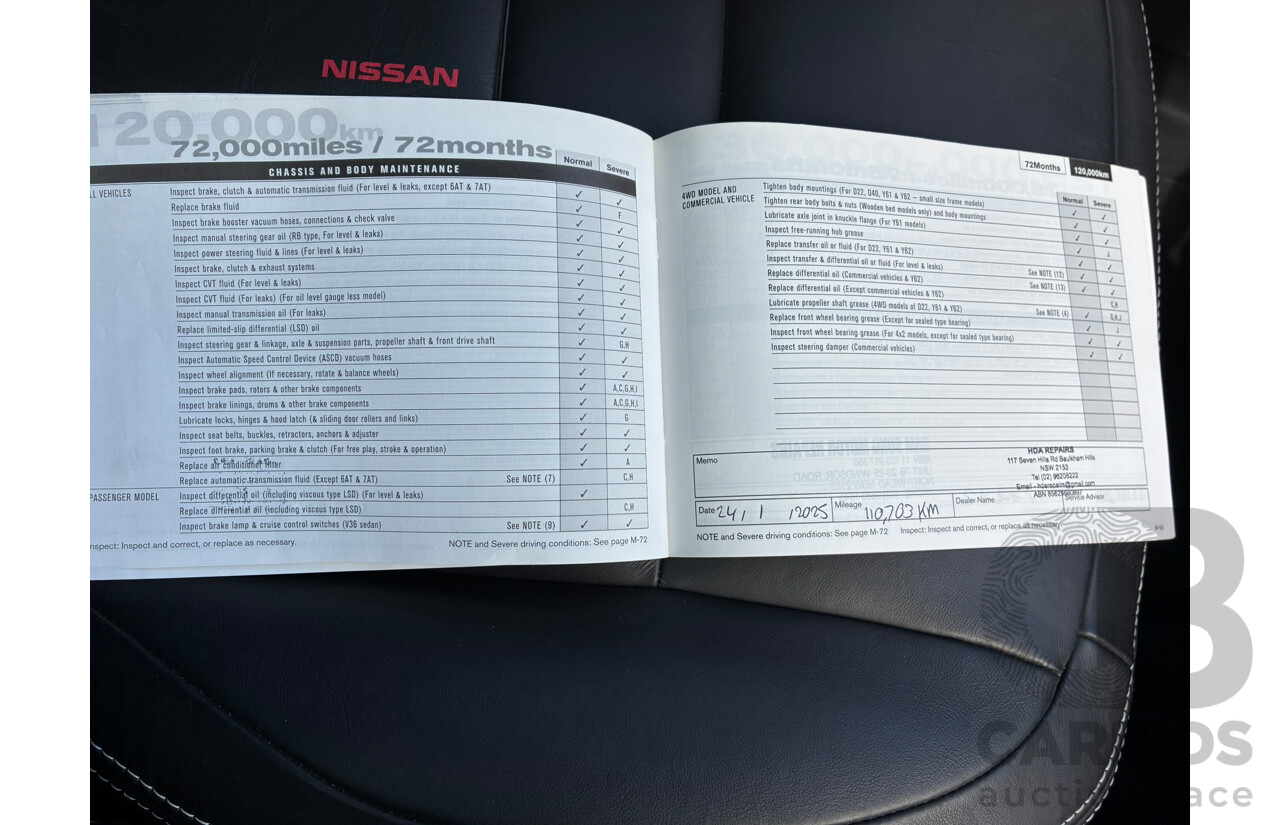 NISSAN
120,000km
72,000miles / 72months
CHASSIS AND BODY MAINTENANCE
Normal
Severe
LL VEHICLES
Inspect brake, clutch & automatic transmission fluid (For level & leaks, except 6AT & 7AT) ✓ ✓
Replace brake fluid ✓ F
Inspect brake booster vacuum hoses, connections & check valve ✓ ✓
Inspect manual steering gear oil (RB type, For level & leaks) ✓ ✓
Inspect power steering fluid & lines (For level & leaks) ✓ ✓
Inspect brake, clutch & exhaust systems ✓ ✓
Inspect CVT fluid (For level & leaks) ✓ ✓
Inspect CVT fluid (For leaks) (For oil level gauge less model) ✓ ✓
Inspect manual transmission oil (For leaks) ✓ ✓
Replace limited-slip differential (LSD) oil ✓ ✓
Inspect steering gear & linkage, axle & suspension parts, propeller shaft & front drive shaft ✓ G,H
Inspect Automatic Speed Control Device (ASCD) vacuum hoses ✓ ✓
Inspect wheel alignment (If necessary, rotate & balance wheels) ✓ ✓
Inspect brake pads, rotors & other brake components ✓ A,C,G,H,I
Inspect brake linings, drums & other brake components ✓ A,C,G,H,I
Lubricate locks, hinges & hood latch (& sliding door rollers and links) ✓ G
Inspect seat belts, buckles, retractors, anchors & adjuster ✓ ✓
Inspect foot brake, parking brake & clutch (For free play, stroke & operation) ✓ ✓
Replace air conditioner filter ✓ A
Replace automatic transmission fluid (Except 6AT & 7AT) See NOTE (7) C,H
PASSENGER MODEL
Inspect differential oil (including viscous type LSD) (For level & leaks) ✓
Replace differential oil (including viscous type LSD) C,H
Inspect brake lamp & cruise control switches (V36 sedan) See NOTE (9) ✓ ✓
nspect: Inspect and correct, or replace as necessary.
NOTE and Severe driving conditions: See page M-72
72Months
120,000km
Normal
Severe
4WD MODEL AND
COMMERCIAL VEHICLE
Tighten body mountings (For D22, D40, Y61 & Y62 – small size frame models) ✓ ✓
Tighten rear body bolts & nuts (Wooden bed models only) and body mountings ✓ ✓
Lubricate axle joint in knuckle flange (For Y61 models) ✓ J
Inspect free-running hub grease ✓ ✓
Replace transfer oil or fluid (For D22, Y61 & Y62) ✓ ✓
Inspect transfer & differential oil or fluid (For level & leaks) ✓ ✓
Replace differential oil (Commercial vehicles & Y62) See NOTE (12)
Replace differential oil (Except commercial vehicles & Y62) See NOTE (13) C,H
Lubricate propeller shaft grease (4WD models of D22, Y61 & Y62) ✓ G,H,J
Replace front wheel bearing grease (Except for sealed type bearing) See NOTE (4) J
Inspect front wheel bearing grease (For 4x2 models, except for sealed type bearing) ✓ ✓
Inspect steering damper (Commercial vehicles) ✓ ✓
Memo
HDA REPAIRS
117 Seven Hills Rd Baulkham Hills
NSW 2153
Tel (02) 96206222
Email - hdarepairs@gmail.com
Date 24 / 1 / 2025
Mileage 110,703 KM
Dealer Name
Service Advisor
NOTE and Severe driving conditions: See page M-72
Inspect: Inspect and correct, or replace as necessary.
CARBIDS
auction place